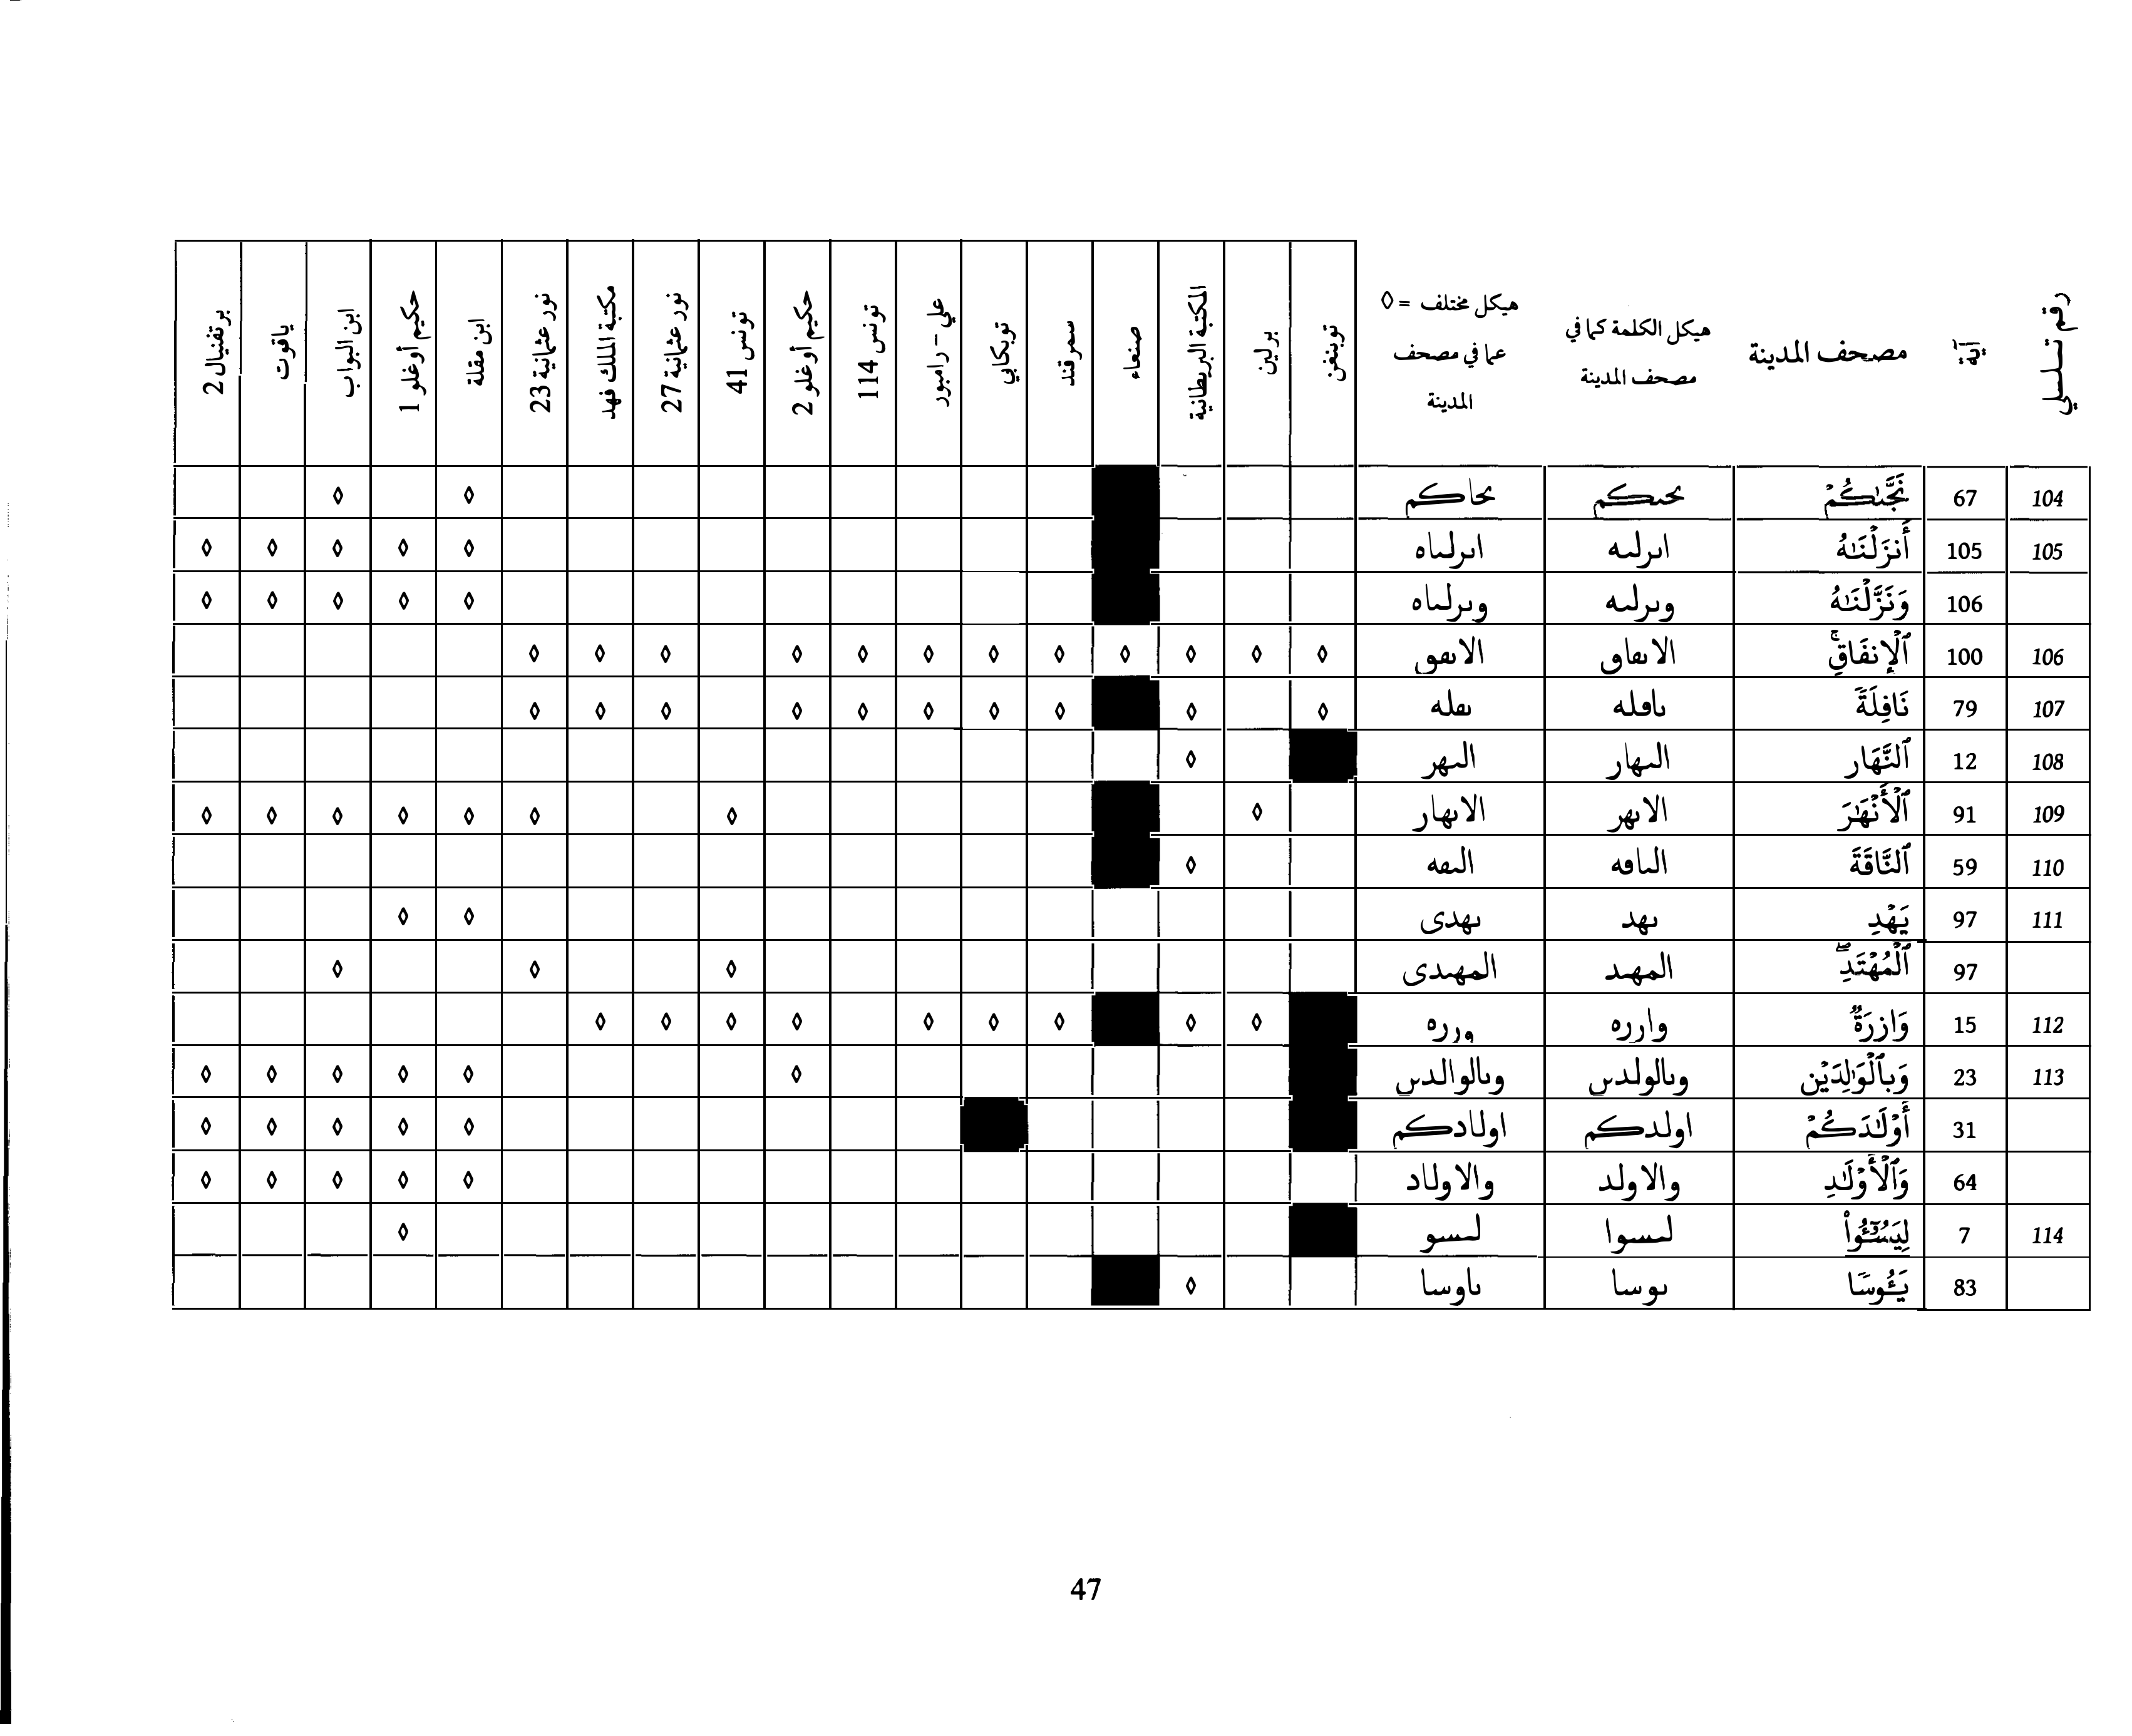 رقم تسلسلي آية مصحف المدينة هيكل الكلمة كما في مصحف المدينة هيكل مختلف = ◊ عما في مصحف المدينة توبنغن برلين المكتبة البريطانية صنعاء سمرقند توبكابي علي – رامبور تونس 114 حكيم أوغلو 2 تونس 41 نور عثمانية 27 مكتبة الملك فهد نور عثمانية 23 ابن مقلة حكيم أوغلو 1 ابن البواب ياقوت برتفنيال 2
104 67 نَجَّىٰكُمْ ٮحٮكم ٮحاكم ◊ ◊
105 105 أَنزَلْنَٰهُ اٮرلٮه اٮرلٮاه ◊ ◊ ◊ ◊ ◊
106 وَنَزَّلْنَٰهُ وٮرلٮه وٮرلٮاه ◊ ◊ ◊ ◊ ◊
106 100 ٱلْإِنفَاقِۚ الاٮڡاٯ الاٮڡٯ ◊ ◊ ◊ ◊ ◊ ◊ ◊ ◊ ◊ ◊ ◊ ◊
107 79 نَافِلَةً ٮاڡله ٮڡله ◊ ◊ ◊ ◊ ◊ ◊ ◊ ◊ ◊ ◊
108 12 ٱلنَّهَارِ الٮهار الٮهر ◊
109 91 ٱلْأَنْهَٰرَ الاٮهر الاٮهار ◊ ◊ ◊ ◊ ◊ ◊ ◊ ◊
110 59 ٱلنَّاقَةَ الٮاٯه الٮٯه ◊
111 97 يَهْدِ ٮهد ٮهدى ◊ ◊
97 ٱلْمُهْتَدِۖ المهٮد المهٮدى ◊ ◊ ◊
112 15 وَازِرَةٌ وارره ورره ◊ ◊ ◊ ◊ ◊ ◊ ◊ ◊ ◊
113 23 وَبِٱلْوَٰلِدَيْنِ وٮالولدٮں وٮالوالدٮں ◊ ◊ ◊ ◊ ◊ ◊
31 أَوْلَٰدَكُمْ اولدكم اولادكم ◊ ◊ ◊ ◊ ◊
64 وَٱلْأَوْلَٰدِ والاولد والاولاد ◊ ◊ ◊ ◊ ◊
114 7 لِيَسُۥٓـُٔوا۟ لٮسوا لٮسو ◊
83 يَـُٔوسًا ٮوسا ٮاوسا ◊
47